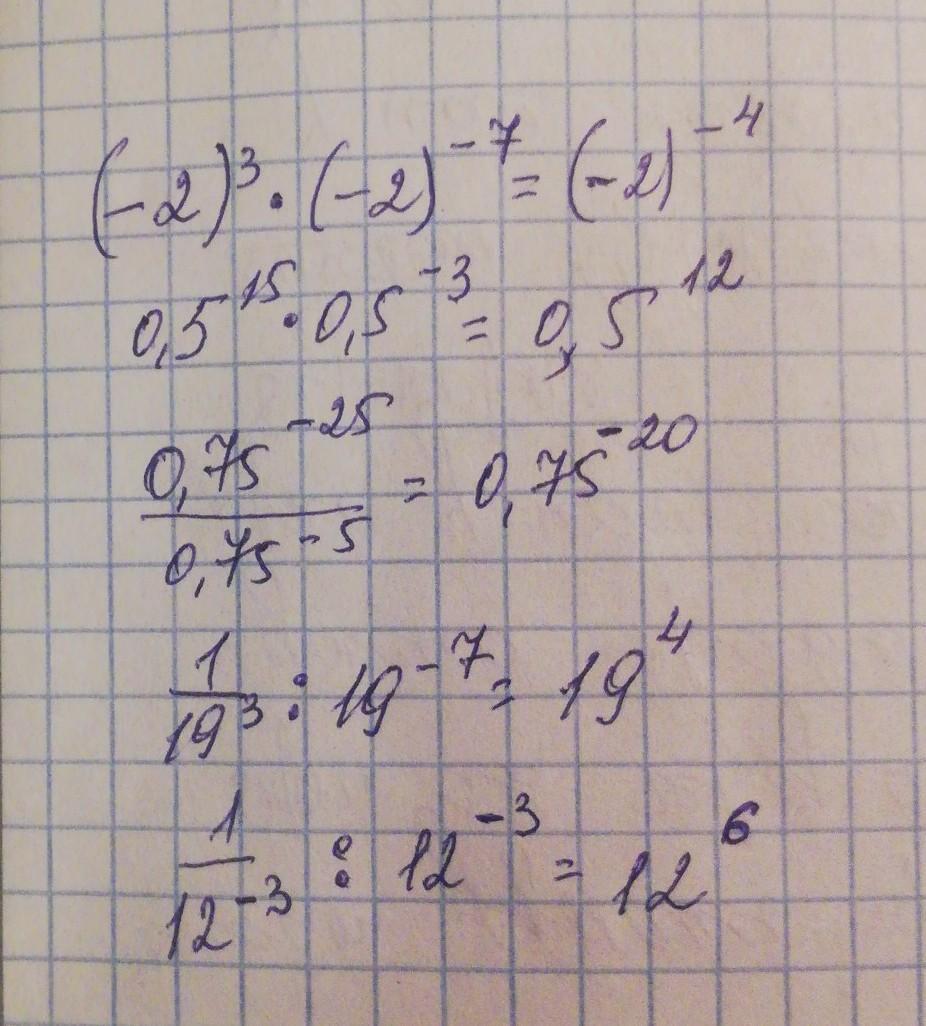 (-2)³ · (-2)⁻⁷ = (-2)⁻⁴
0,5¹⁵ · 0,5⁻³ = 0,5¹²
0,75⁻²⁵ / 0,75⁻⁵ = 0,75⁻²⁰
1/19³ : 19⁻⁷ = 19⁴
1/12⁻³ : 12⁻³ = 12⁶